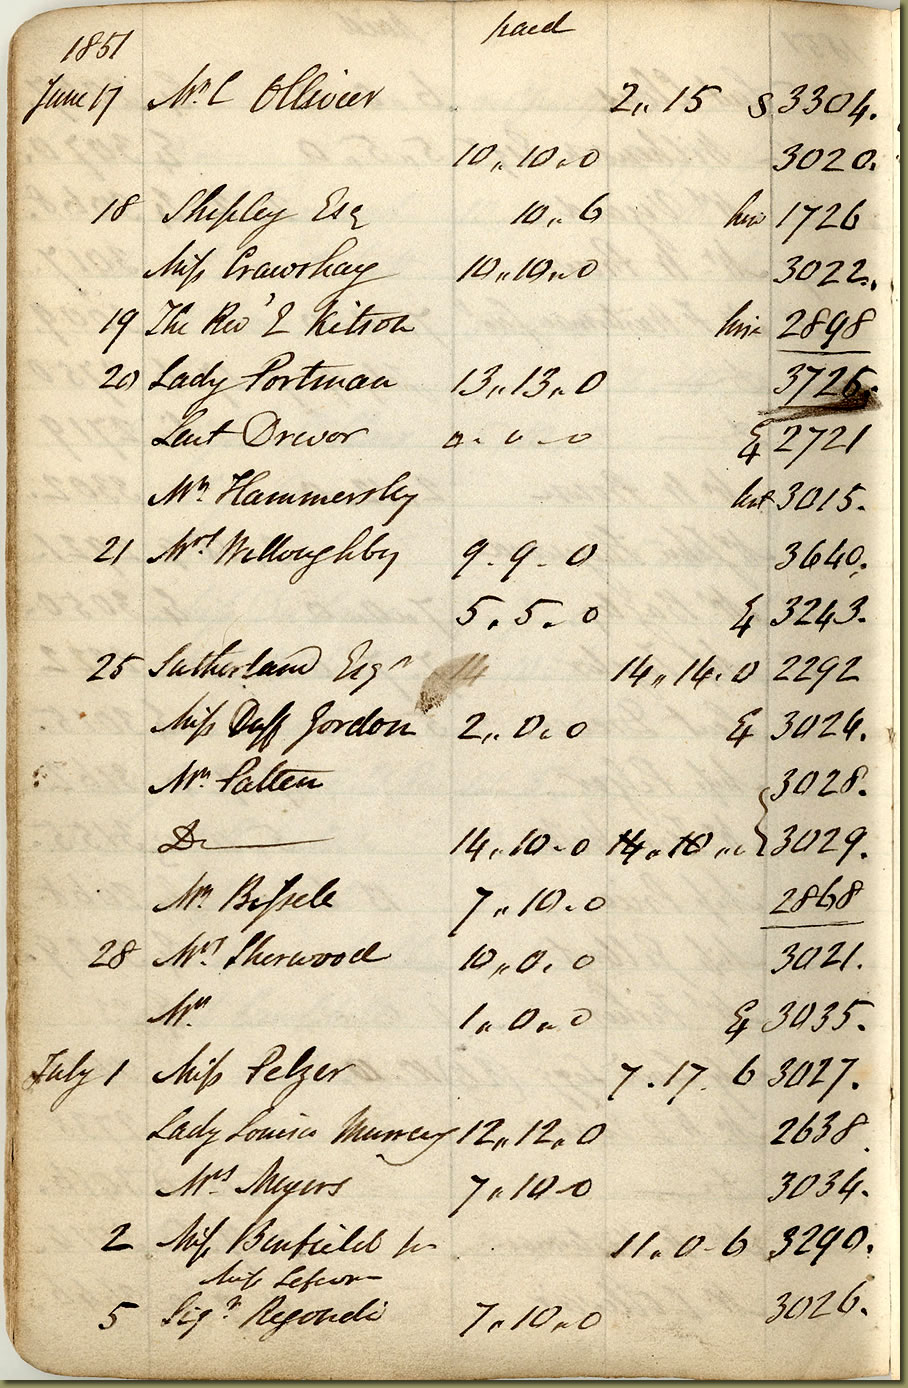 1851 paid
June 17 Mr C Ollivier 2,,15 S 3304.
10,,10,,0 3020.
18 Shipley Esq 10,,6 hire 1726
Miss Crawshay 10,,10,,0 3022.
19 The Revd E Kitson hire 2898
20 Lady Portman 13,,13,,0 3726.
Lent Drevor 0 - 0 - 0 E 2721
Mr Hammersley lent 3015.
21 Mrs Willoughby 9 - 9 - 0 3640.
5,,5,,0 E 3243.
25 Sutherland Esqr 14 14,,14,,0 2292
Miss Duff Gordon 2,,0,,0 E 3024.
Mr Patten 3028.
Do 14,,10,,0 14,,10,,0 3029.
Mr Bissele 7,,10,,0 2868
28 Mrs Sherwood 10,,0,,0 3021.
Mr 1,,0,,0 E 3035.
July 1 Miss Pelzer 7.17.6 3027.
Lady Louisa Murray 12,,12,,0 2638.
Mrs Meyers 7,,10-0 3034.
2 Miss Binfield pr 11,,0-6 3290.
Miss
5 Sigr Regondi 7,,10,,0 3026.